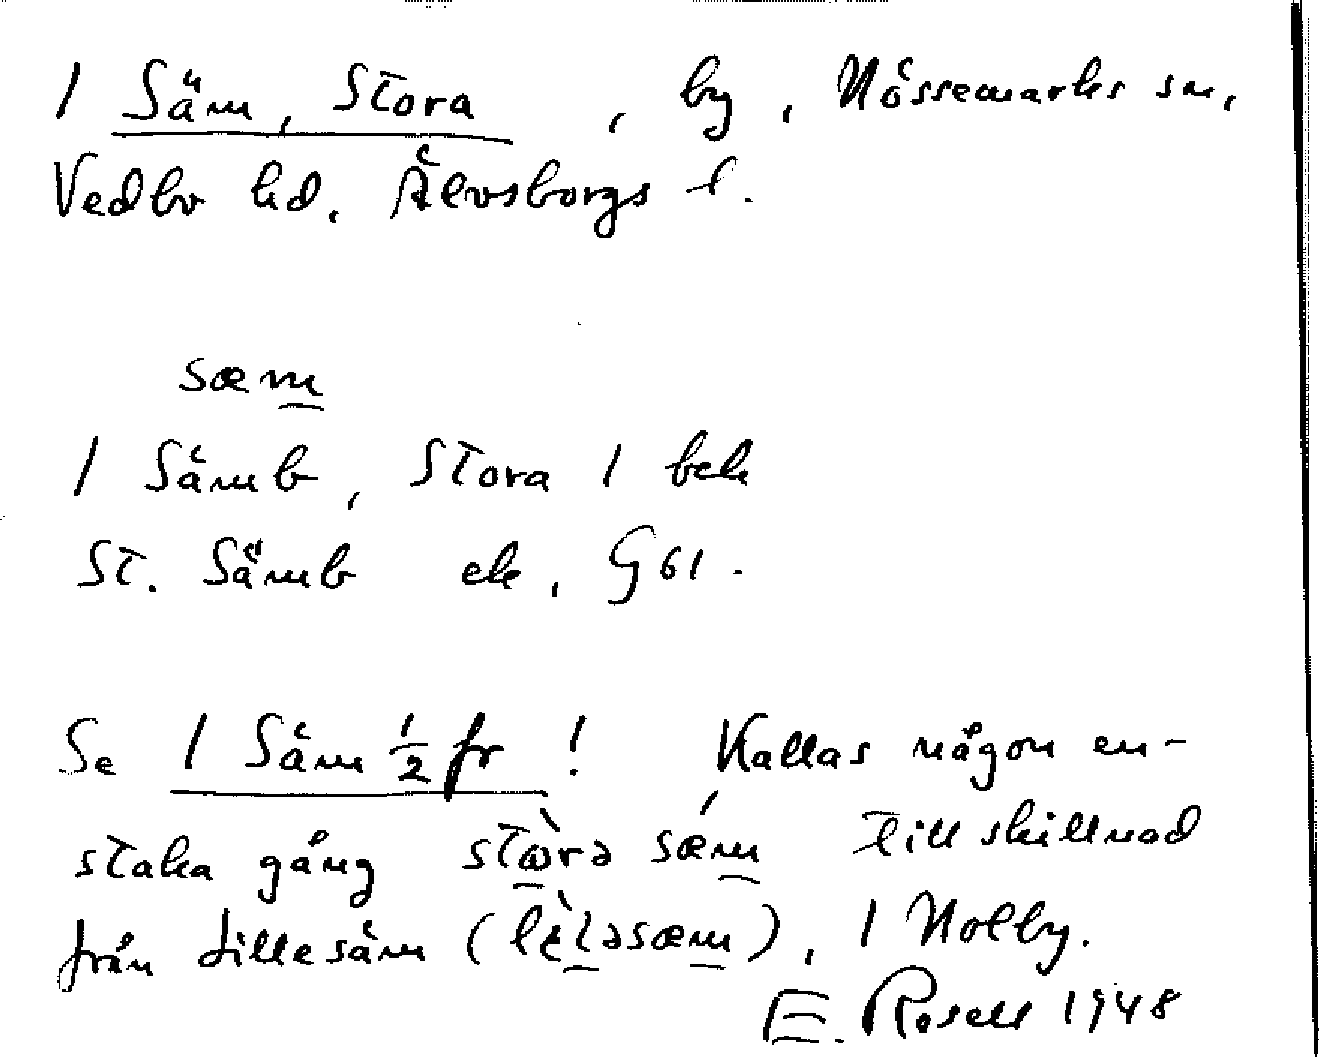 1 Säm, Stora , by, Nössemarks sn,
Vedbo hd. Älvsborgs l.
sæm
1 Sämb, Stora 1 bek
St. Sämb ek, G 61.
Se 1 Säm 1/2 fr ! Kallas någon en-
staka gång stò̱̱rə sǽm till skillnad
från Lillesäm (lì̱ləsæm), 1 Nolby.
E. Rosell 1948